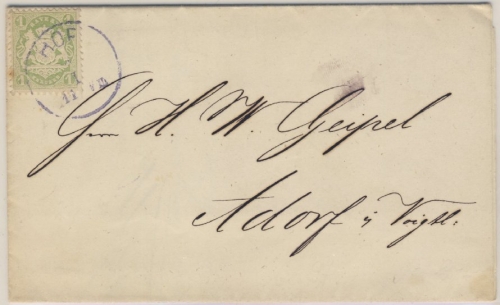 1 1
HOF
Hrn H. W. Geipel
Adorf i/ Voigtl: